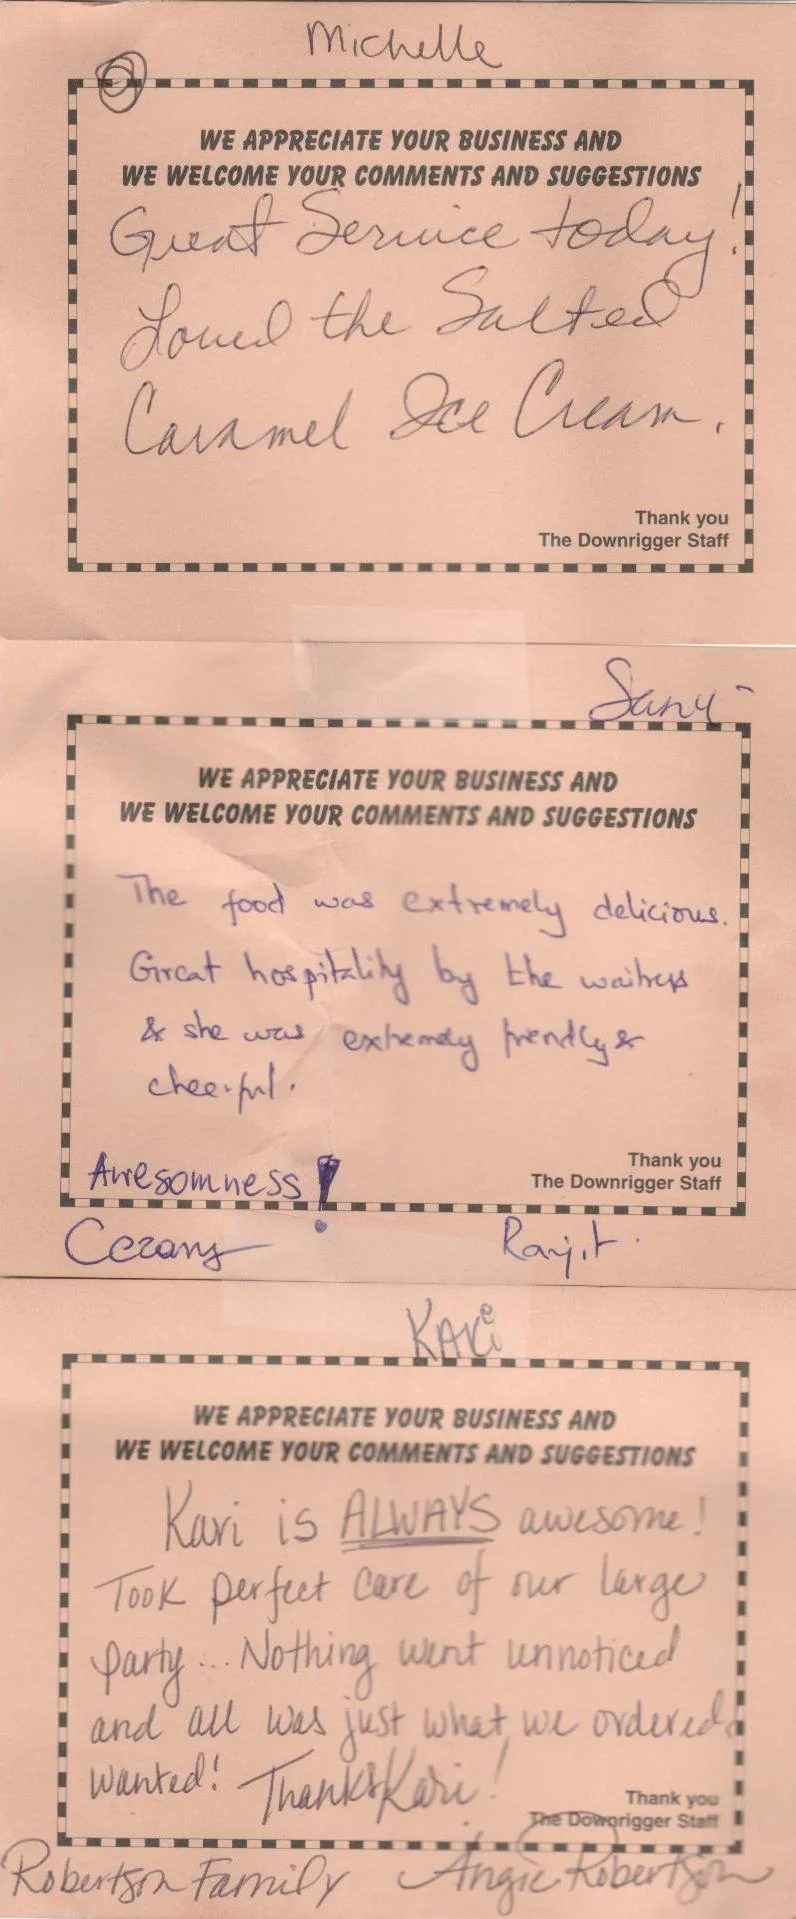 Michelle
WE APPRECIATE YOUR BUSINESS AND
WE WELCOME YOUR COMMENTS AND SUGGESTIONS
Great Service today!
Loved the Salted
Caramel Ice Cream.
Thank you
The Downrigger Staff
WE APPRECIATE YOUR BUSINESS AND
WE WELCOME YOUR COMMENTS AND SUGGESTIONS
The food was extremely delicious.
Great hospitality by the waitress
& she was extremely friendly &
cheerful.
Awesomness!
Thank you
The Downrigger Staff
Ranjit.
Kari
WE APPRECIATE YOUR BUSINESS AND
WE WELCOME YOUR COMMENTS AND SUGGESTIONS
Kari is ALWAYS awesome!
Took perfect care of our large
party... Nothing went unnoticed
and all was just what we ordered
wanted! Thanks Kari!
Thank you
The Downrigger Staff
Robertson Family Angie Robertson